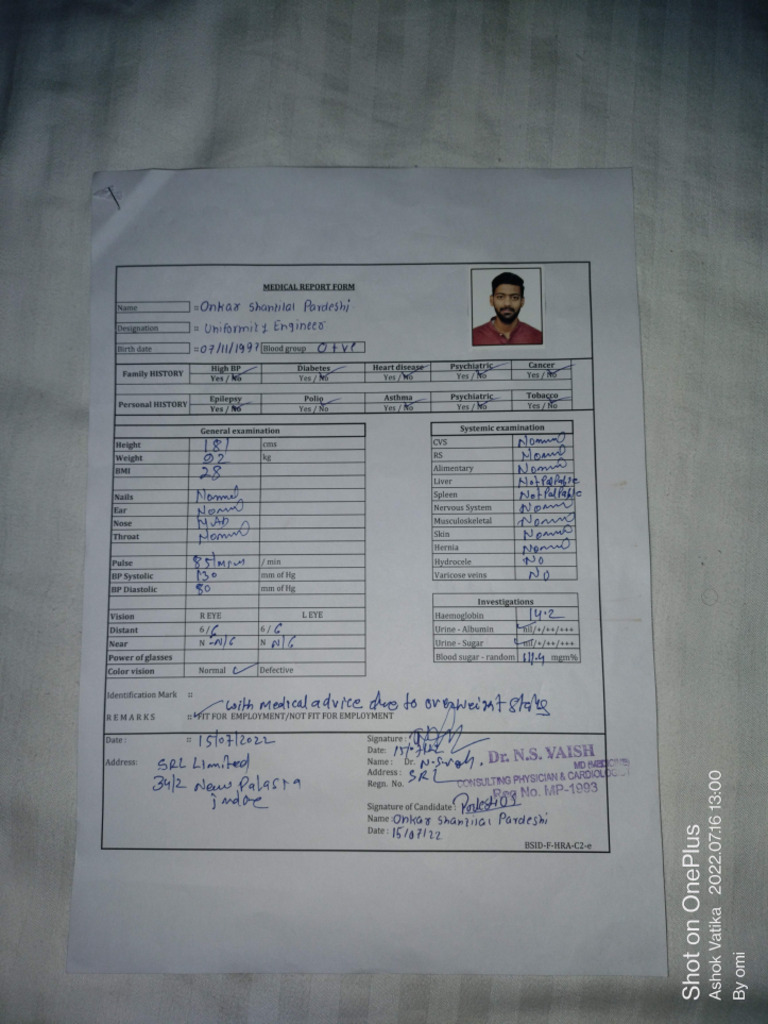 MEDICAL REPORT FORM
Name = Onkar Shantilal Pardeshi
Designation = Uniformity Engineer
Birth date = 07/11/1997 Blood group O +ve
Family HISTORY High BP Diabetes Heart disease Psychiatric Cancer
Yes / No Yes / No Yes / No Yes / No Yes / No
Personal HISTORY Epilepsy Polio Asthma Psychiatric Tobacco
Yes / No Yes / No Yes / No Yes / No Yes / No
General examination
Height 181 cms
Weight 92 kg
BMI 28
Nails Normal
Ear Normal
Nose NAD
Throat Normal
Pulse 85 / min
BP Systolic 130 mm of Hg
BP Diastolic 80 mm of Hg
Vision R EYE L EYE
Distant 6/6 6/6
Near N N/6 N N/6
Power of glasses
Color vision Normal Defective
Systemic examination
CVS Normal
RS Normal
Alimentary Normal
Liver Not Palpable
Spleen Not Palpable
Nervous System Normal
Musculoskeletal Normal
Skin Normal
Hernia Normal
Hydrocele NO
Varicose veins NO
Investigations
Haemoglobin 14.2
Urine - Albumin nil/+/++/+++
Urine - Sugar nil/+/++/+++
Blood sugar - random mgm%
Identification Mark ::
with medical advice due to overweight
REMARKS :: FIT FOR EMPLOYMENT/NOT FIT FOR EMPLOYMENT
Date : :: 15/07/2022
Address: SRL Limited
34/2 New Palasia
indoe
Signature :
Date: 15/07/22
Name : Dr. N.S.
Address : SRL
Regn. No.
Dr. N.S. VAISH
MD MEDICINE
CONSULTING PHYSICIAN & CARDIOLOGIST
Reg No. MP-1993
Signature of Candidate : PardeshiOS
Name : Onkar Shantilal Pardeshi
Date : 15/07/22
BSID-F-HRA-C2-e
Shot on OnePlus
Ashok Vatika 2022.07.16 13:00
By omi